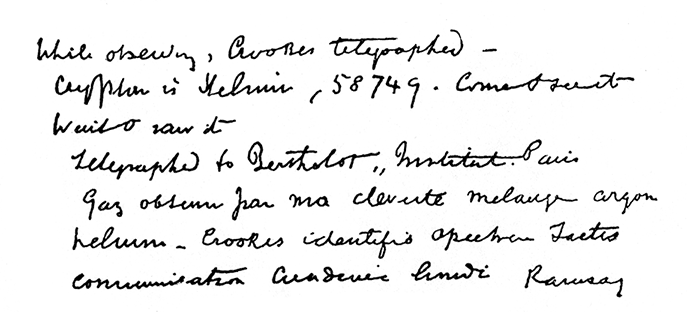 While observing, Crookes telegraphed –
Crypton is Helium, 58749. Come & see it
Went & saw it
Telegraphed to Berthelot,, Institut. Paris
Gaz obtenu par moi cleveite melange argon
helium – Crookes identifie spectre Faites
communication Academie lundi Ramsay